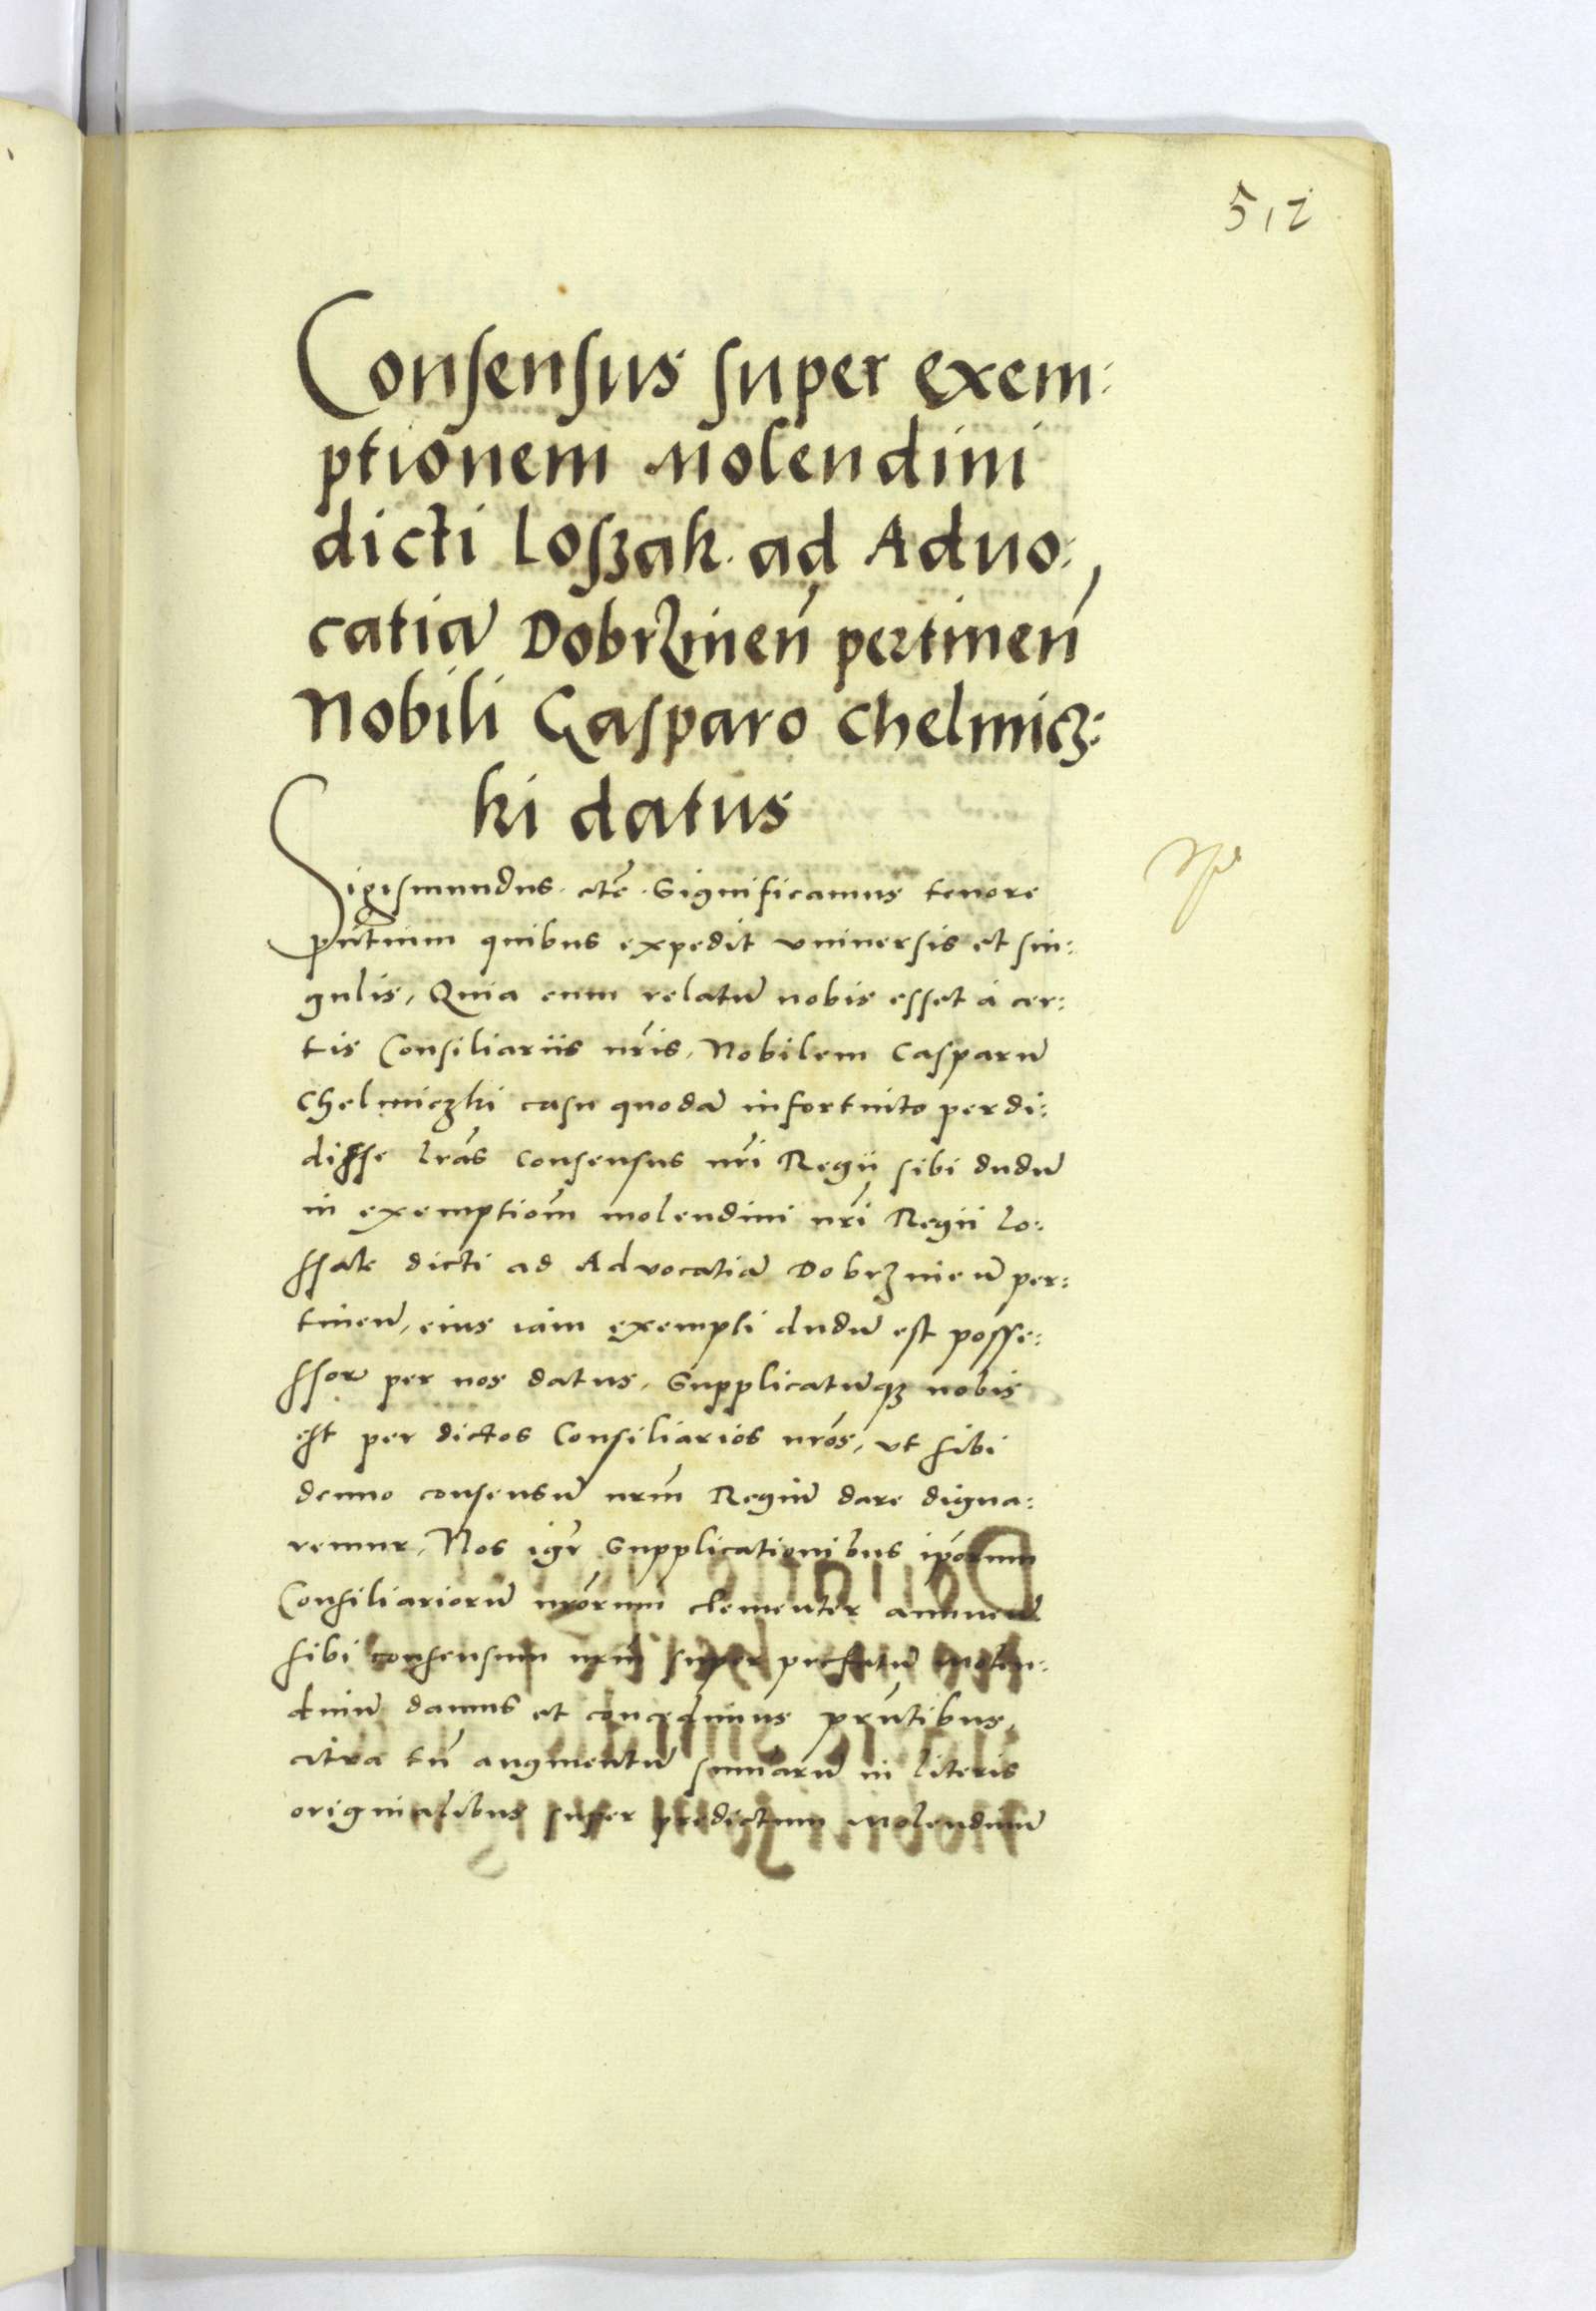 512
Consensus super exem:
ptionem Molendini
dicti Loszak ad Aduo:
catiã Dobrzineñ pertineñ
Nobili Gasparo Chelmicz:
ki datus
Sigismundus etc̃. Significamus tenore
pñtium quibus expedit vniuersis et sin:
gulis, Quia cum relatũ nobis esset à cer:
tis Consiliariis nr̃is, Nobilem Casparũ
Chelmiczki casu quodã infortuito perdi:
disse lrãs consensus nr̃i Regii sibi dudũ
in exemptiom̃ molendini nr̃i Regii Lo:
ssak dicti ad Advocatiã Dobrznieñ per:
tineñ, eius iam exempli dudũ est posse:
ssor per nos datus, Supplicatũqz nobis
est per dictos Consiliarios nrõs, vt sibi
denuo consensũ nrm̃ Regiũ dare digna:
remur, Nos igr̃ supplicationibus ipõrum
Consiliariorũ nrõrum clementer annueñ
sibi consensum nrm̃ super prefatũ Molen:
dinũ damus et concedimus prñtibus,
citra tñ augmentũ sum̃arũ in literis
originalibus super predictum Molendinũ